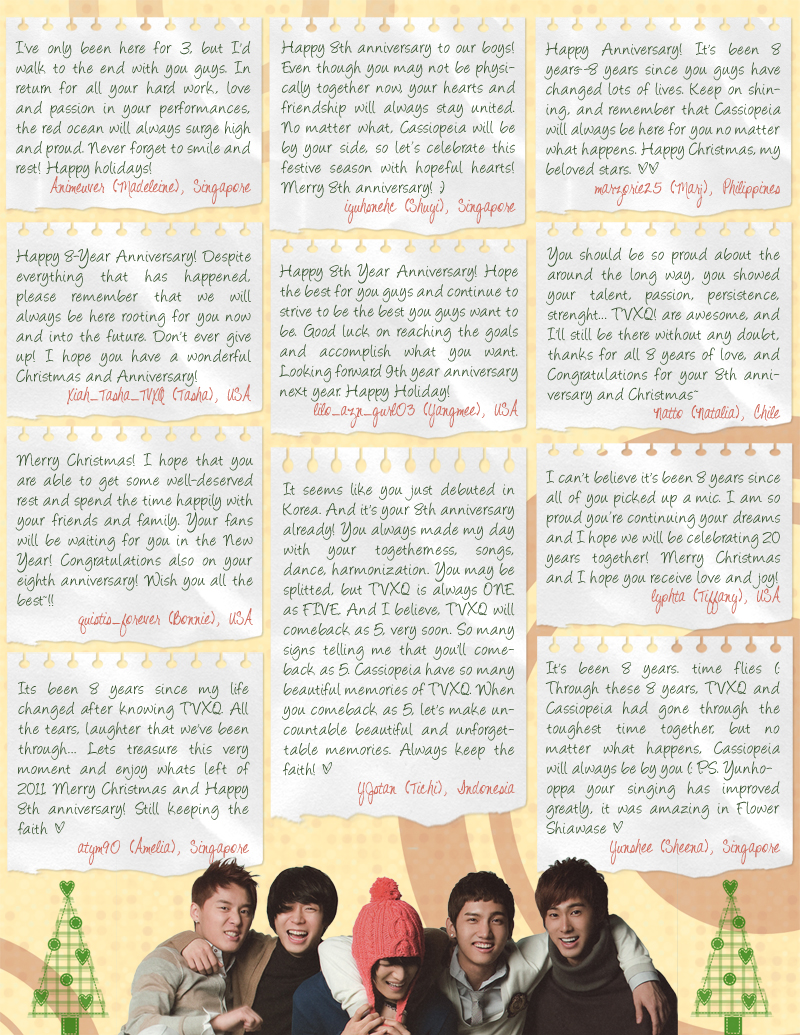 I've only been here for 3, but I'd
walk to the end with you guys. In
return for all your hard work, love
and passion in your performances,
the red ocean will always surge high
and proud. Never forget to smile and
rest! Happy holidays!
Animeuver (Madeleine), Singapore
Happy 8-Year Anniversary! Despite
everything that has happened,
please remember that we will
always be here rooting for you now
and into the future. Don't ever give
up! I hope you have a wonderful
Christmas and Anniversary!
Xiah_Tasha_TVXQ (Tasha), USA
Merry Christmas! I hope that you
are able to get some well-deserved
rest and spend the time happily with
your friends and family. Your fans
will be waiting for you in the New
Year! Congratulations also on your
eighth anniversary! Wish you all the
best~!!
quistis_forever (Bonnie), USA
Its been 8 years since my life
changed after knowing TVXQ. All
the tears, laughter that we've been
through... Lets treasure this very
moment and enjoy whats left of
2011 Merry Christmas and Happy
8th anniversary! Still keeping the
faith ♡
atym90 (Amelia), Singapore
Happy 8th anniversary to our boys!
Even though you may not be physi-
cally together now, your hearts and
friendship will always stay united.
No matter what, Cassiopeia will be
by your side, so let's celebrate this
festive season with hopeful hearts!
Merry 8th anniversary! :)
iyuhsnehc (Shuyi), Singapore
Happy 8th Year Anniversary! Hope
the best for you guys and continue to
strive to be the best you guys want to
be. Good luck on reaching the goals
and accomplish what you want.
Looking forward 9th year anniversary
next year. Happy Holiday!
lilo_azn_gurl03 (Yangmee), USA
It seems like you just debuted in
Korea. And it's your 8th anniversary
already! You always made my day
with your togetherness, songs,
dance, harmonization. You may be
splitted, but TVXQ is always ONE
as FIVE. And I believe, TVXQ will
comeback as 5, very soon. So many
signs telling me that you'll come-
back as 5. Cassiopeia have so many
beautiful memories of TVXQ. When
you comeback as 5, let's make un-
countable beautiful and unforget-
table memories. Always keep the
faith! ♡
YJjotan (Tichi), Indonesia
Happy Anniversary! It's been 8
years--8 years since you guys have
changed lots of lives. Keep on shin-
ing, and remember that Cassiopeia
will always be here for you no matter
what happens. Happy Christmas, my
beloved stars. ♡♡
marzorie25 (Marj), Philippines
You should be so proud about the
around the long way, you showed
your talent, passion, persistence,
strenght... TVXQ! are awesome, and
I'll still be there without any doubt,
thanks for all 8 years of love, and
Congratulations for your 8th anni-
versary and Christmas~
Natto (Natalia), Chile
I can't believe it's been 8 years since
all of you picked up a mic. I am so
proud you're continuing your dreams
and I hope we will be celebrating 20
years together! Merry Christmas
and I hope you receive love and joy!
lyphta (Tiffany), USA
It's been 8 years. time flies (:
Through these 8 years, TVXQ and
Cassiopeia had gone through the
toughest time together, but no
matter what happens, Cassiopeia
will always be by you (: PS. Yunho-
oppa your singing has improved
greatly, it was amazing in Flower
Shiawase ♡
Yunshee (Sheena), Singapore